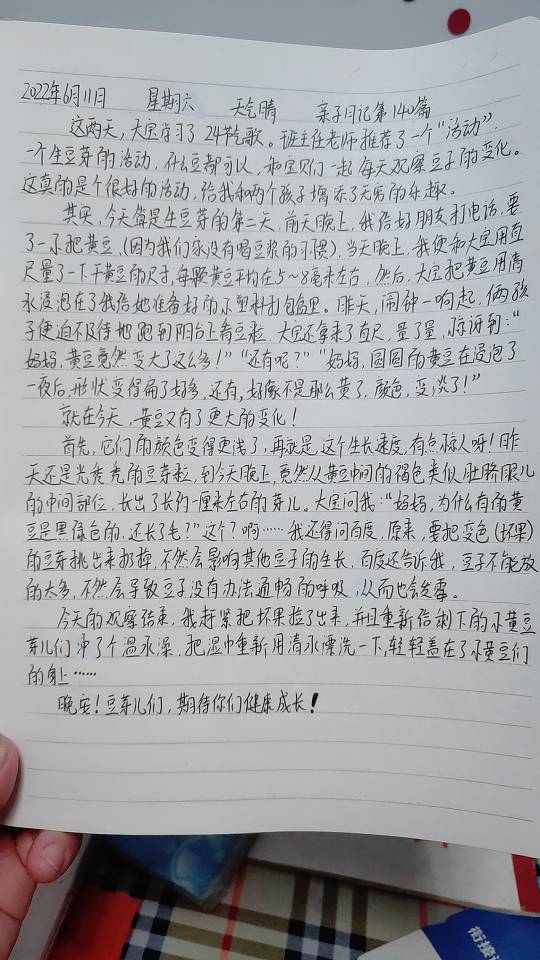 2022年6月11日 星期六 天气晴 亲子日记第140篇
这两天，大宝学习了24节气歌。班主任老师推荐了一个“活动”，
一个生豆芽的活动，什么豆都可以，和宝贝们一起每天观察豆子的变化。
这真的是个很好的活动，给我和两个孩子增添了无穷的乐趣。
其实，今天算是生豆芽的第二天，前天晚上，我给好朋友打电话，要
了一小把黄豆，(因为我们家没有喝豆浆的习惯)，当天晚上，我便和大宝用直
尺量了一下干黄豆的尺寸，每颗黄豆平均在5~8毫米左右，然后，大宝把黄豆用清
水浸泡在了我给她准备好的小塑料打包盒里。昨天，闹钟一响起，俩孩
子便迫不及待地跑到阳台上看豆粒，大宝还拿来了直尺，量了量，惊讶到：“
妈妈，黄豆竟然变大了这么多！”“还有呢？”“妈妈，圆圆的黄豆在浸泡了
一夜后，形状变得扁了好多，还有，好像不是那么黄了，颜色，变淡了！”
就在今天，黄豆又有了更大的变化！
首先，它们的颜色变得更浅了，再就是，这个生长速度，有点惊人呀！昨
天还是光秃秃的豆芽粒，到今天晚上，竟然从黄豆中间的褐色类似肚脐眼儿
的中间部位，长出了长约一厘米左右的芽儿。大宝问我：“妈妈，为什么有的黄
豆是黑绿色的，还长了毛？”这个？啊……我还得问百度，原来，要把变色(坏果)
的豆芽挑出来扔掉，不然会影响其他豆子的生长，百度还告诉我，豆子不能放
的太多，不然会导致豆子没有办法通畅的呼吸，从而也会发霉。
今天的观察结束，我赶紧把坏果捡了出来，并且重新给剩下的小黄豆
芽儿们冲了个温水澡，把湿巾重新用清水漂洗一下，轻轻盖在了小黄豆们
的身上……
晚安！豆芽儿们，期待你们健康成长！
衔接